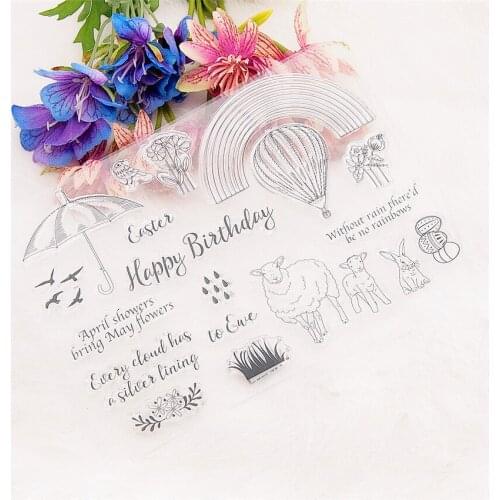 Easter
Happy Birthday
Without rain there'd
be no rainbows
April showers
bring May flowers
to Ewe
Every cloud has
a silver lining